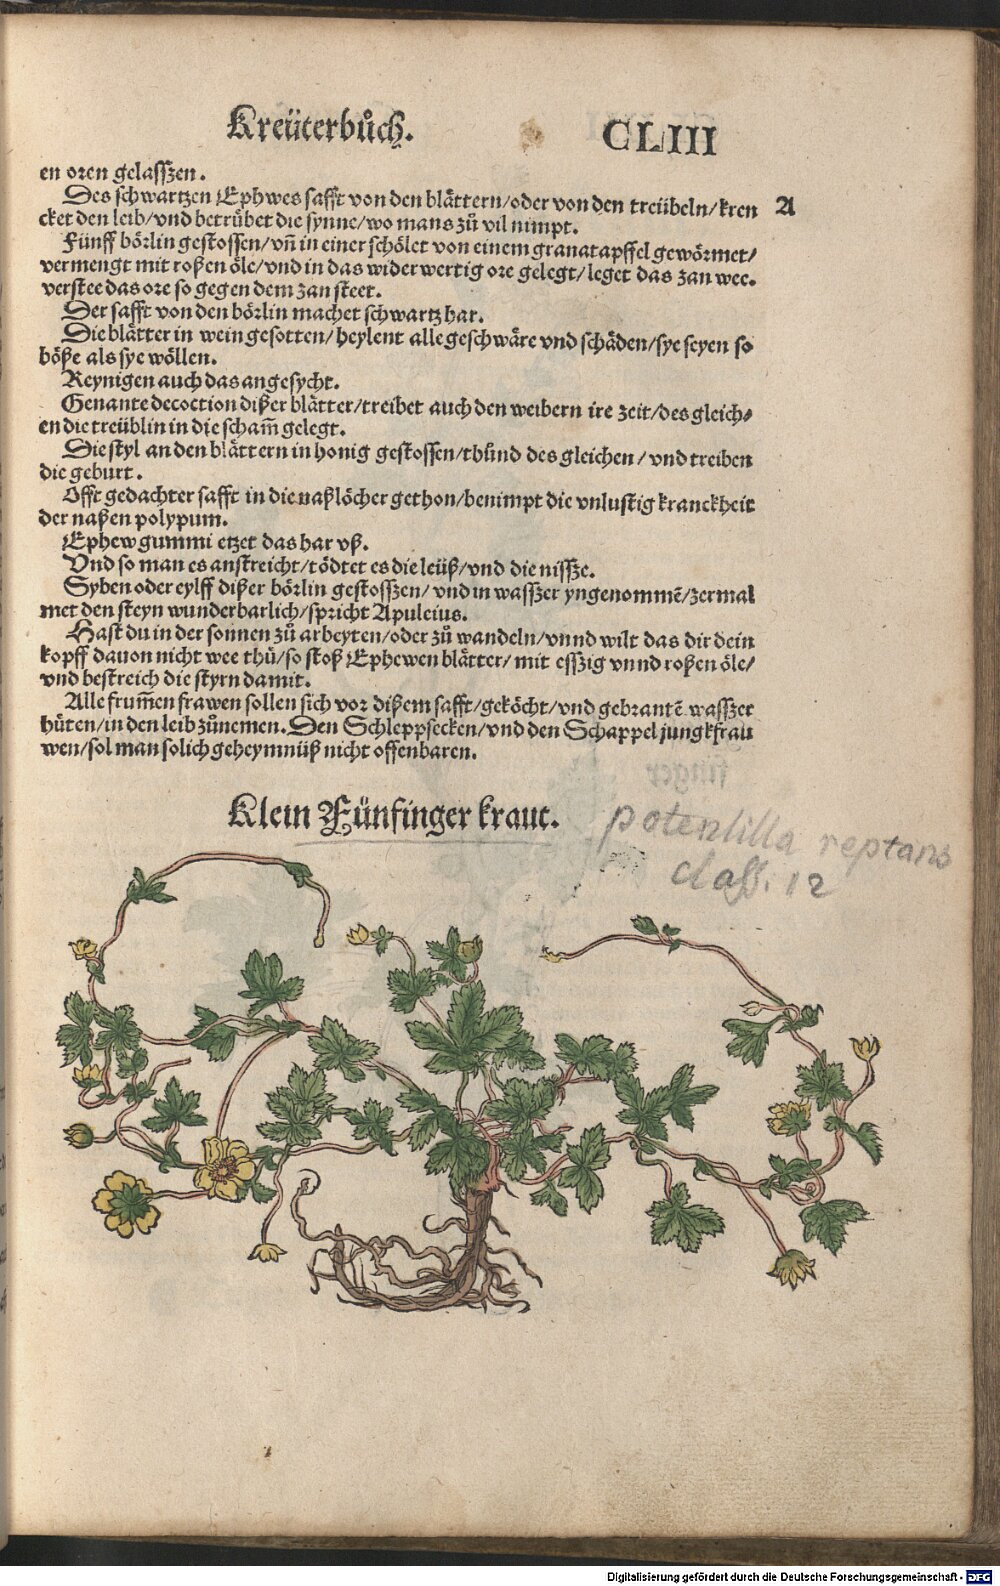 Kreüterbůch. CLIII
en oren gelasszen.
Des schwartzen Ephwes safft von den blättern/oder von den treübeln/kren A
cket den leib/vnd betrübet die synne/wo mans zů vil nimpt.
Fünff börlin gestossen/vn̄ in einer schölet von einem granatapffel gewörmet/
vermengt mit roßen öle/vnd in das widerwertig ore gelegt/leget das zan wee.
verstee das ore so gegen dem zan steet.
Der safft von den börlin machet schwartz har.
Die blätter in wein gesotten/heylent alle geschwäre vnd schäden/sye seyen so
böße als sye wöllen.
Reynigen auch das angesycht.
Genante decoction dißer blätter/treibet auch den weibern ire zeit/des gleich⸗
en die treüblin in die scham̄ gelegt.
Die styl an den blättern in honig gestossen/thůnd des gleichen/vnd treiben
die geburt.
Offt gedachter safft in die naßlöcher gethon/benimpt die vnlustig kranckheit
der naßen polypum.
Ephew gummi etzet das har vß.
Vnd so man es anstreicht/tödtet es die leüß/vnd die nissze.
Syben oder eylff dißer börlin gestosszen/vnd in wasszer yngenommē/zermal
met den steyn wunderbarlich/spricht Apuleius.
Hast du in der sonnen zů arbeyten/oder zů wandeln/vnnd wilt das dir dein
kopff dauon nicht wee thů/so stoß Ephewen blätter/mit esszig vnnd roßen öle/
vnd bestreich die styrn damit.
Alle frum̄en frawen sollen sich vor dißem safft/geköcht/vnd gebrantē wasszer
hüten/in den leib zůnemen. Den Schleppsecken/vnd den Schappel jungkfrau
wen/sol man solich geheymnüß nicht offenbaren.
Klein Fünfinger kraut.
potentilla reptans
class. 12
Digitalisierung gefördert durch die Deutsche Forschungsgemeinschaft - DFG